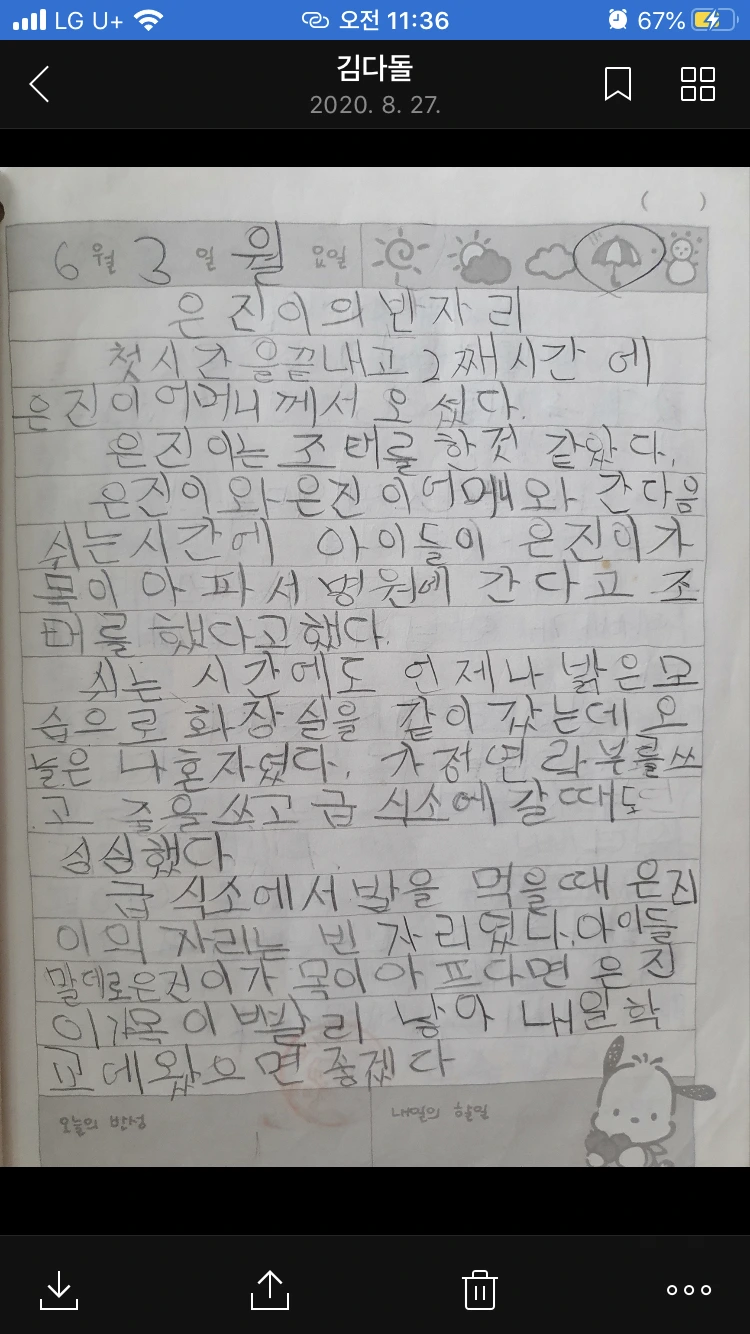 LG U+ 오전 11:36 67%
김다돌
2020. 8. 27.
( )
6 월 3 일 월 요일
은진이의 빈자리
첫시간을끝내고 2째시간에
은진이어머니께서 오셨다.
은진이는 조태를 한것 같았다.
은진이와 은진이어매와 간다음
쉬는시간에 아이들이 은진이가
목이 아파서 병원에 간다고 조
태를 했다고했다.
쉬는 시간에도 언제나 밝은모
습으로 화장실을 같이 갔는데 오
늘은 나혼자였다. 가정연락부를쓰
고 줄을쓰고 급식소에 갈때도
심심했다
급식소에서 밥을 먹을때 은진
이의 자리는 빈자리였다. 아이들
말데로은진이가 목이아프다면 은진
이가목이 빨리 낳아 내일학
교에왔으면 좋겠다
오늘의 반성
내일의 할일